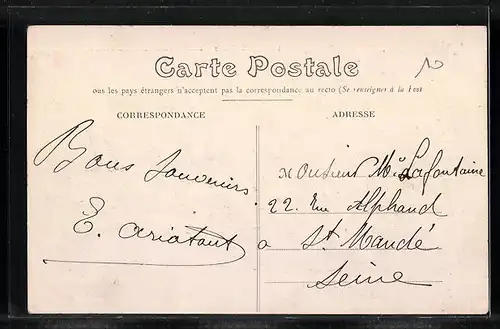 10
Carte Postale
ous les pays étrangers n'acceptent pas la correspondance au recto (Se renseigner à la Post
CORRESPONDANCE
ADRESSE
Bons Souvenirs
E.
Monsieur Mce Lafontaine
22. Rue Alphand
a St Mandé
Seine